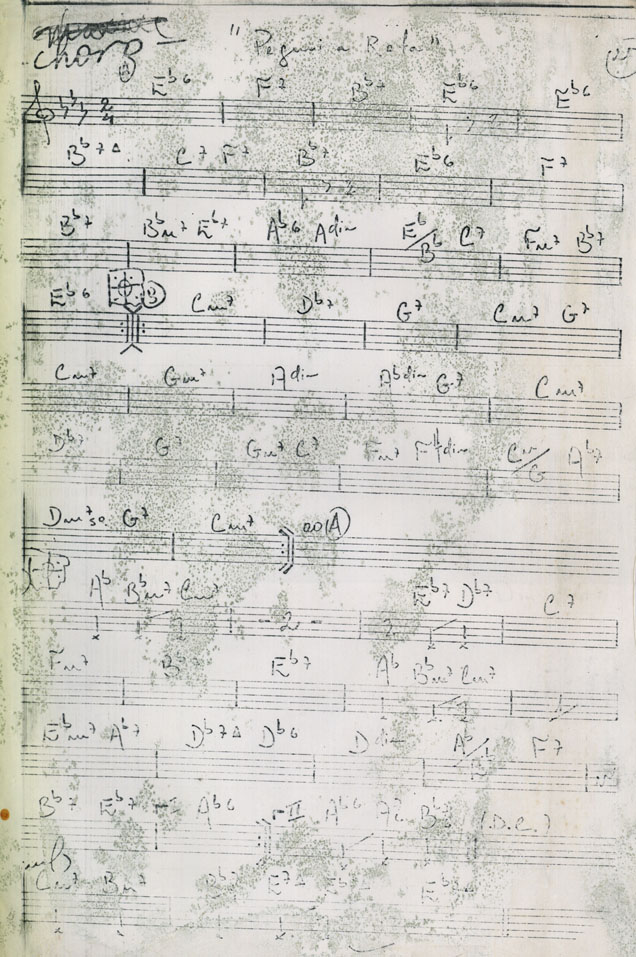 Choro
"Peguei a Reta"
E♭6 F7 B♭7 E♭6 E♭6
2/4
B♭7Δ C7 F7 B♭7 E♭6 F7
B♭7 B♭m7 E♭7 A♭6 Adim E♭/B♭ C7 Fm7 B♭7
E♭6 B Cm7 D♭7 G7 Cm7 G7
Cm7 Gm7 Adim A♭dim G7 Cm7
D♭7 G7 Gm7 C7 Fm7 F#dim Cm/G A♭7
Dm7 G7 Cm7 ao A
A♭ B♭m7 Cm7 -2- E♭7 D♭7 C7
Fm7 B♭7 E♭7 A♭ B♭m7 Cm7
E♭m7 A♭7 D♭7Δ D♭6 Ddim A♭ F7
B♭7 E♭7 I A♭6 II A♭6 (D.C.)
Cm7 Bm7 B♭7